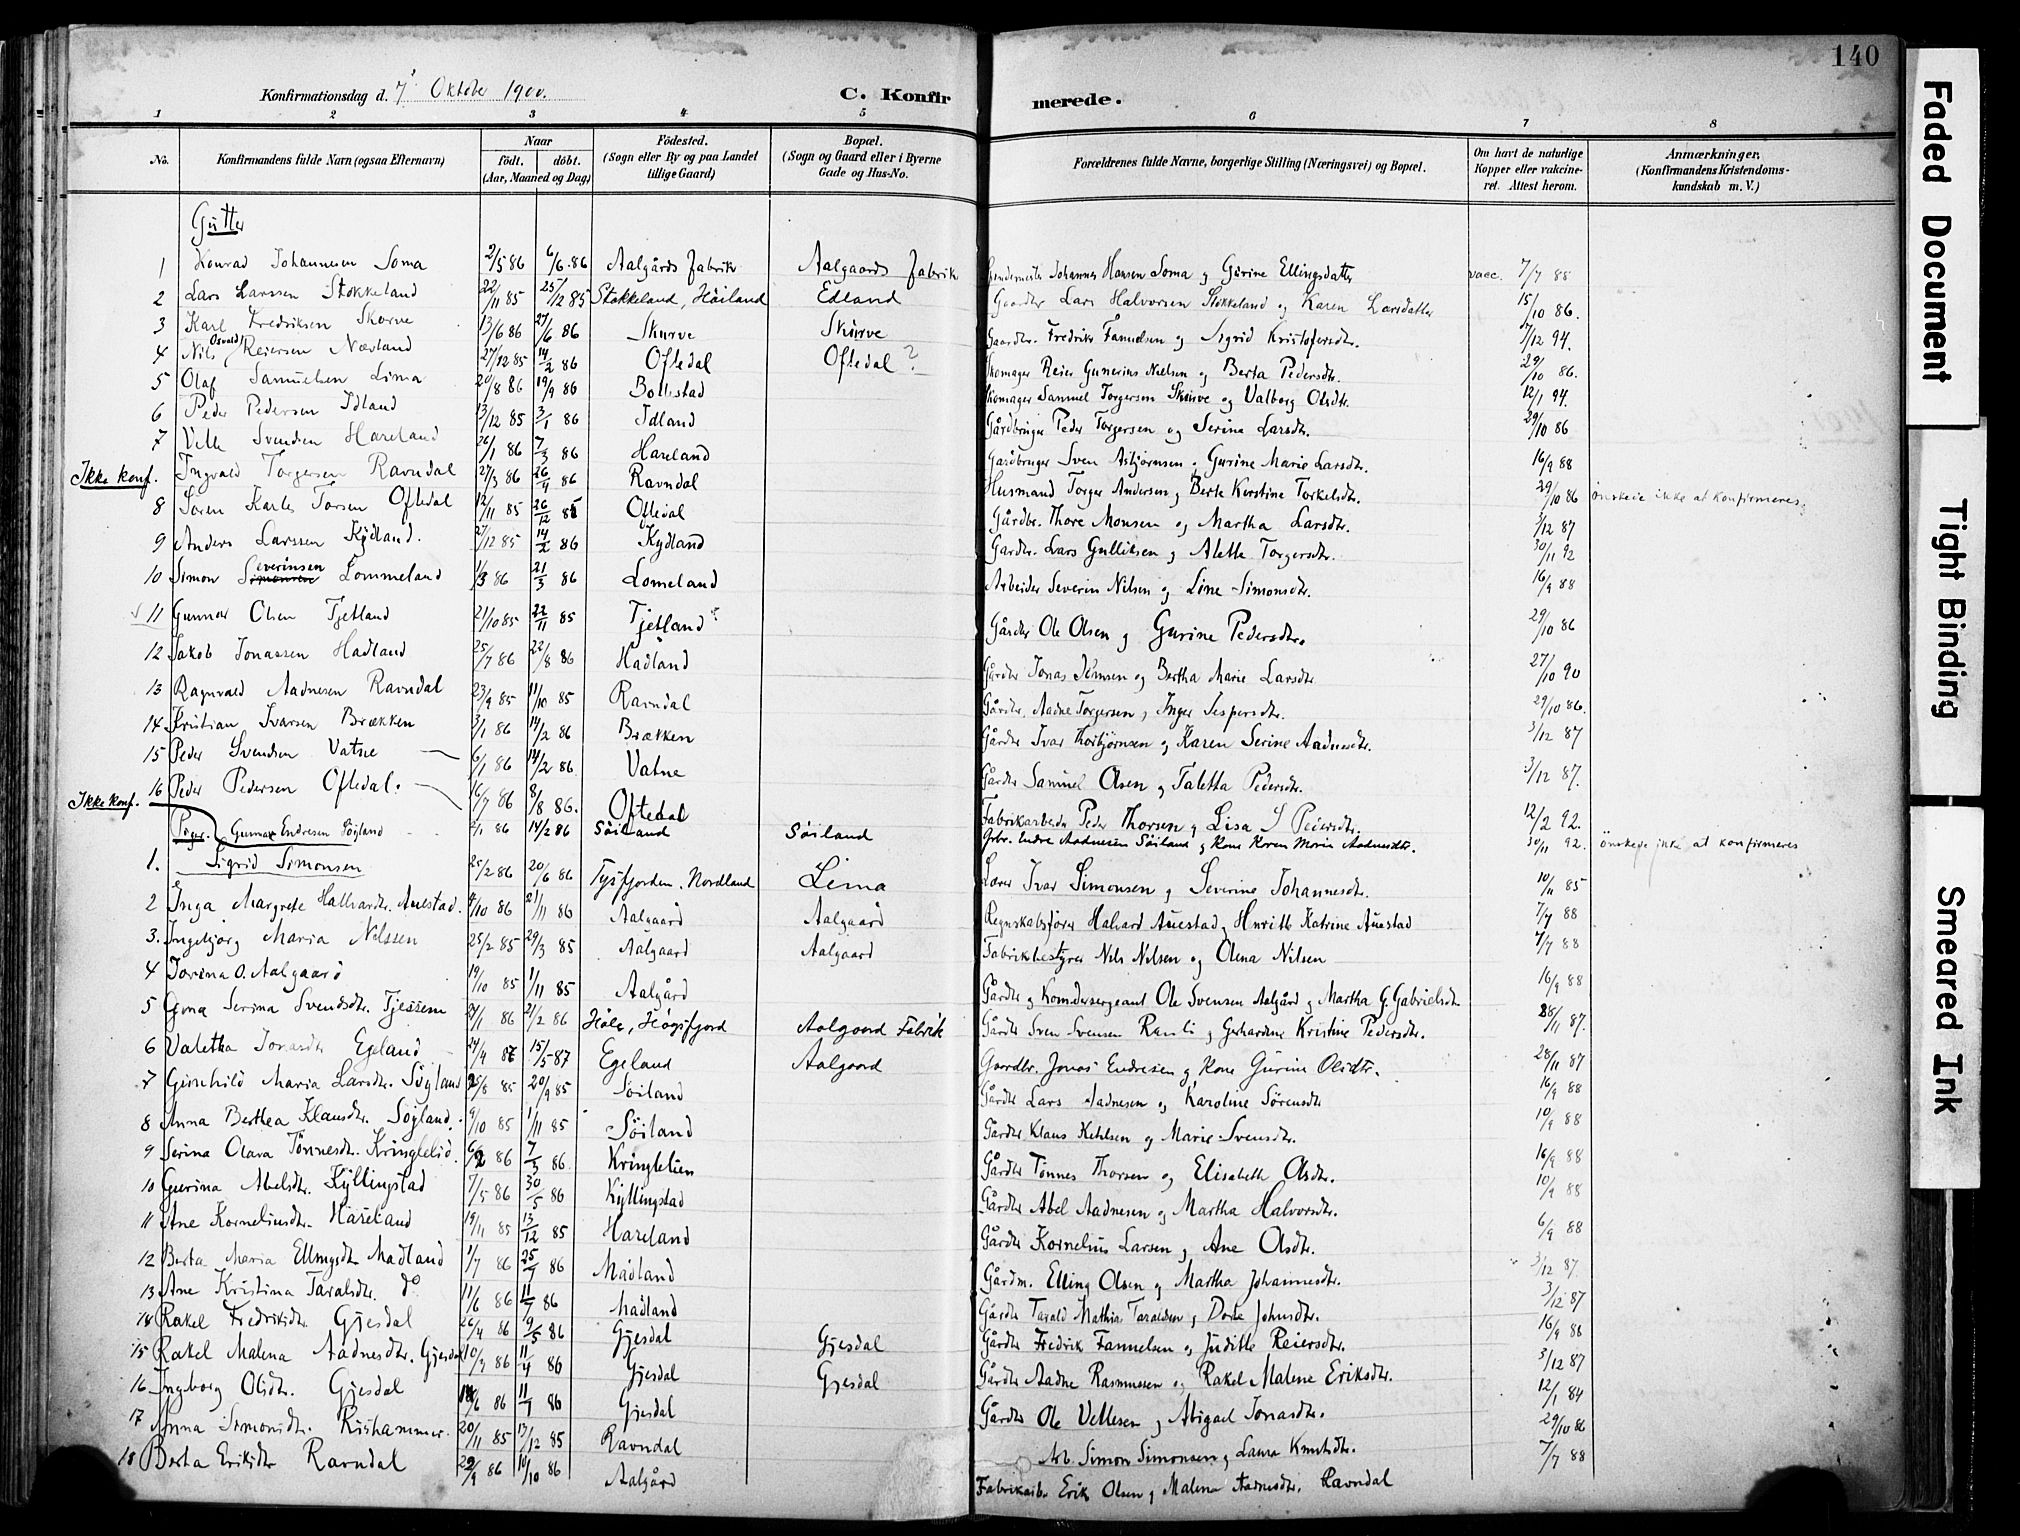 140
Konfirmationsdag d. 7' Oktober 1900.
C. Konfirmerede.
1 2 3 4 5 6 7 8
No.
Konfirmandens fulde Navn (ogsaa Efternavn)
Naar
født. døbt.
(Aar, Maaned og Dag)
Fødested.
(Sogn eller By og paa Landet
tillige Gaard)
Bopæl.
(Sogn og Gaard eller i Byerne
Gade og Hus-No.
Forældrenes fulde Navne, borgerlige Stilling (Næringsvei) og Bopæl.
Om havt de naturlige
Kopper eller vakcine-
ret. Attest herom.
Anmærkninger.
(Konfirmandens Kristendoms-
kundskab m. V.)
Gutter
1 Konrad Johannesen Soma 2/5 86 6/6 86 Aalgårds fabrik Aalgaards fabrik Johannes Hansen Soma og Gurine Ellingsdatter vacc. 7/7 88
2 Lars Larssen Stokkeland 22/11 85 25/12 85 Stokkeland, Höiland Edland Gaardbr Lars Halvorsen Stokkeland og Karen Larsdatter 15/10 86.
3 Karl Fredriksen Skurve 13/6 86 27/6 86 Skurve Skurve Gaardbr. Fredrik Fanuelsen og Sigrid Kristofersdtr. 7/12 94.
4 Nils Osvald Reiersen Nævland 27/12 85 14/2 86 Oftedal Oftedal ? Skomager Reier Gunerius Nielsen og Berta Pedersdtr. 29/10 86.
5 Olaf Samuelsen Lima 20/8 86 19/9 86 Bollestad Skomager Samuel Torgersen Skurve og Valborg Olsdtr. 12/1 94.
6 Peder Pedersen Idland 13/12 85 3/1 86 Idland Gårdbruger Peder Torgersen og Serina Larsdtr. 29/10 86
7 Velle Svendsen Hareland 26/1 86 7/3 86 Hareland Gardbruger Sven Asbjørnsen og Gurine Marie Larsdtr. 16/9 88
Ikke konf. Ingvald Torgersen Ravndal 27/3 86 26/4 86 Ravndal Husmand Torger Andersen og Berte Kerstine Torkelsdtr. 29/10 86 ønskede ikke at konfirmeres.
8 Søren Karles Torsen Oftedal 12/11 85 26/12 85 Oftedal Gårdbr. Thore Monsen og Martha Larsdtr. 3/12 87
9 Anders Larssen Kydland. 27/12 85 14/2 86 Kydland Gardbr. Lars Gulliksen og Alette Torgersdtr. 30/11 92
10 Simon Severinsen Lommeland 1/3 86 21/3 86 Lomeland Arbeider Severin Nilsen og Line Simonsdtr. 16/9 88
11 Gunnar Olsen Tjetland 21/10 85 22/11 85 Tjetland? Gårdbr Ole Olsen og Gurine Pedersdtr. 29/10 86
12 Jakob Jonassen Hadland 25/7 86 22/8 86 Hadland Gårdbr Jonas Jonsen og Bertha Marie Larsdtr 27/10 90
13 Ragnvald Aadnesen Ravndal 23/9 85 11/10 85 Ravndal Gårdbr. Aadne Torgersen og Inger Jespersdtr. 29/10 86.
14 Kristian Ivarsen Brækken 3/1 86 14/2 86 Brækken Gårdbr Ivar Thorbjørnsen og Karen Serine Aadnesdtr. 3/12 87
15 Peder Svendsen Vatne 6/1 86 14/2 86 Vatne Gårdbr Samuel Olsen og Taletha Pedersdtr. 3/12 87.
16 Peder Pedersen Oftedal. 16/7 86 8/8 86. Oftedal Fabrikarbeider Peder Thorsen og Lisa S Pedersdtr. 12/2 92.
Ikke konf. Gunnar Endresen Søyland 2/1 86 14/2 86 Søiland Søiland Grbr. Endre Aadnesen Söiland og Kone Karen Maria Aadnesdtr. 30/11 92. ønskede ikke at konfirmeres
Piger.
1. Sigrid Simonsen 25/2 86 20/6 86 Tysfjorden, Nordland Lima Lærer Ivar Simonsen og Severine Johannesdtr. 10/11 85
2 Inga Margrete Hallvardtr. Auestad. 4/10 86 21/11 86 Aalgaard Aalgaard Regnskabsfører Halvard Auestad og Henritte Katrine Auestad 7/7 88
3. Ingebjørg Maria Nilssen 25/2 85 29/3 85 Aalgaard Aalgaard Fabrikbestyrer Nils Nilsen og Olena Nilsen 7/7 88
4 Torina O. Aalgaard 19/10 85 1/11 85 Aalgård Gårdbr og Komdersergeant Ole Svensen Aalgård og Martha G. Gabrielsdtr 16/9 88
5 Gjna Serina Svendsdtr. Tjessem 24/1 86 21/2 86 Höle, Högsfjord Aalgaard Fabrik Gårdbr Sven Svensen og Gerhardine Kristine Pedersdtr. 28/11 87.
6 Valetha Jonasdtr Egeland 24/4 87 15/5 87 Egeland Aalgaard Gaardbr. Jonas Endresen og Kone Gurine Olsdtr. 28/11 87
7 Gunhild Maria Larsdtr. Søyland 25/8 85 20/9 85 Søiland Gårdbr Lars Aadnesen og Karoline Sörensdtr 16/9 88
8 Anna Berthea Klausdtr. Søyland. 9/10 85 1/11 85 Søiland Gårdbr Klaus Kehlsen og Marie Svensdtr. 10/9 88
9 Serina Olava Tønnesdtr. Kringlelid. 6/2 86 7/3 86. Kringlelien Gårdbr Tönnes Thorsen og Elisabeth Olsdtr. 16/9 88
10 Gurina Abelsdtr. Kyllingstad 7/5 86 30/5 86 Kyllingstad Gårdbr Abel Aadnesen og Martha Halvorsdtr. 10/9 88
11 Ane Korneliusdtr. Hareland 19/11 85 13/12 85 Hareland Gårdbr Kornelius Larsen og Ane Olsdtr. 6/9 88
12 Berta Maria Ellingsdtr Madland 1/7 86 25/7 86 Madland Gårdm. Elling Olsen og Martha Johannesdtr. 3/12 87.
13 Ane Kristina Taraldsdtr. do 11/6 86 11/7 86 Madland Gårdbr Tarald Mathias Taraldsen og Dorte Johnsdtr. 3/12 87
14 Rakel Fredriksdtr. Gjesdal 26/4 86 9/5 86 Gjesdal Gjesdal Gårdbr Fredrik Fannelsen og Juditte Reiersdtr. 16/9 86
15 Rakel Malena Aadnesdtr. Gjesdal 10/3 86 11/4 86 Gjesdal Gjesdal Gårdbr Aadne Rasmussen og Rakel Malene Eriksdtr. 3/12 87
16 Ingeborg Olsdtr. Gjesdal 14/6 86 11/7 86 Gjesdal Gårdbr Ole Vellesen og Abigael Jonasdtr. 12/1 84
17 Anna Simonsdtr. Rishammer. 20/11 85 17/12 85 Ravndal Arb. Simon Simonsen og Laura Knutsdtr. 29/10 86
18 Berta Eriksdtr Ravndal 29/9 86 10/10 86 Aalgård Fabrikarb. Erik Olsen og Malena Aadnesdtr. Ravndal 7/7 88
Faded Document
Tight Binding
Smeared Ink